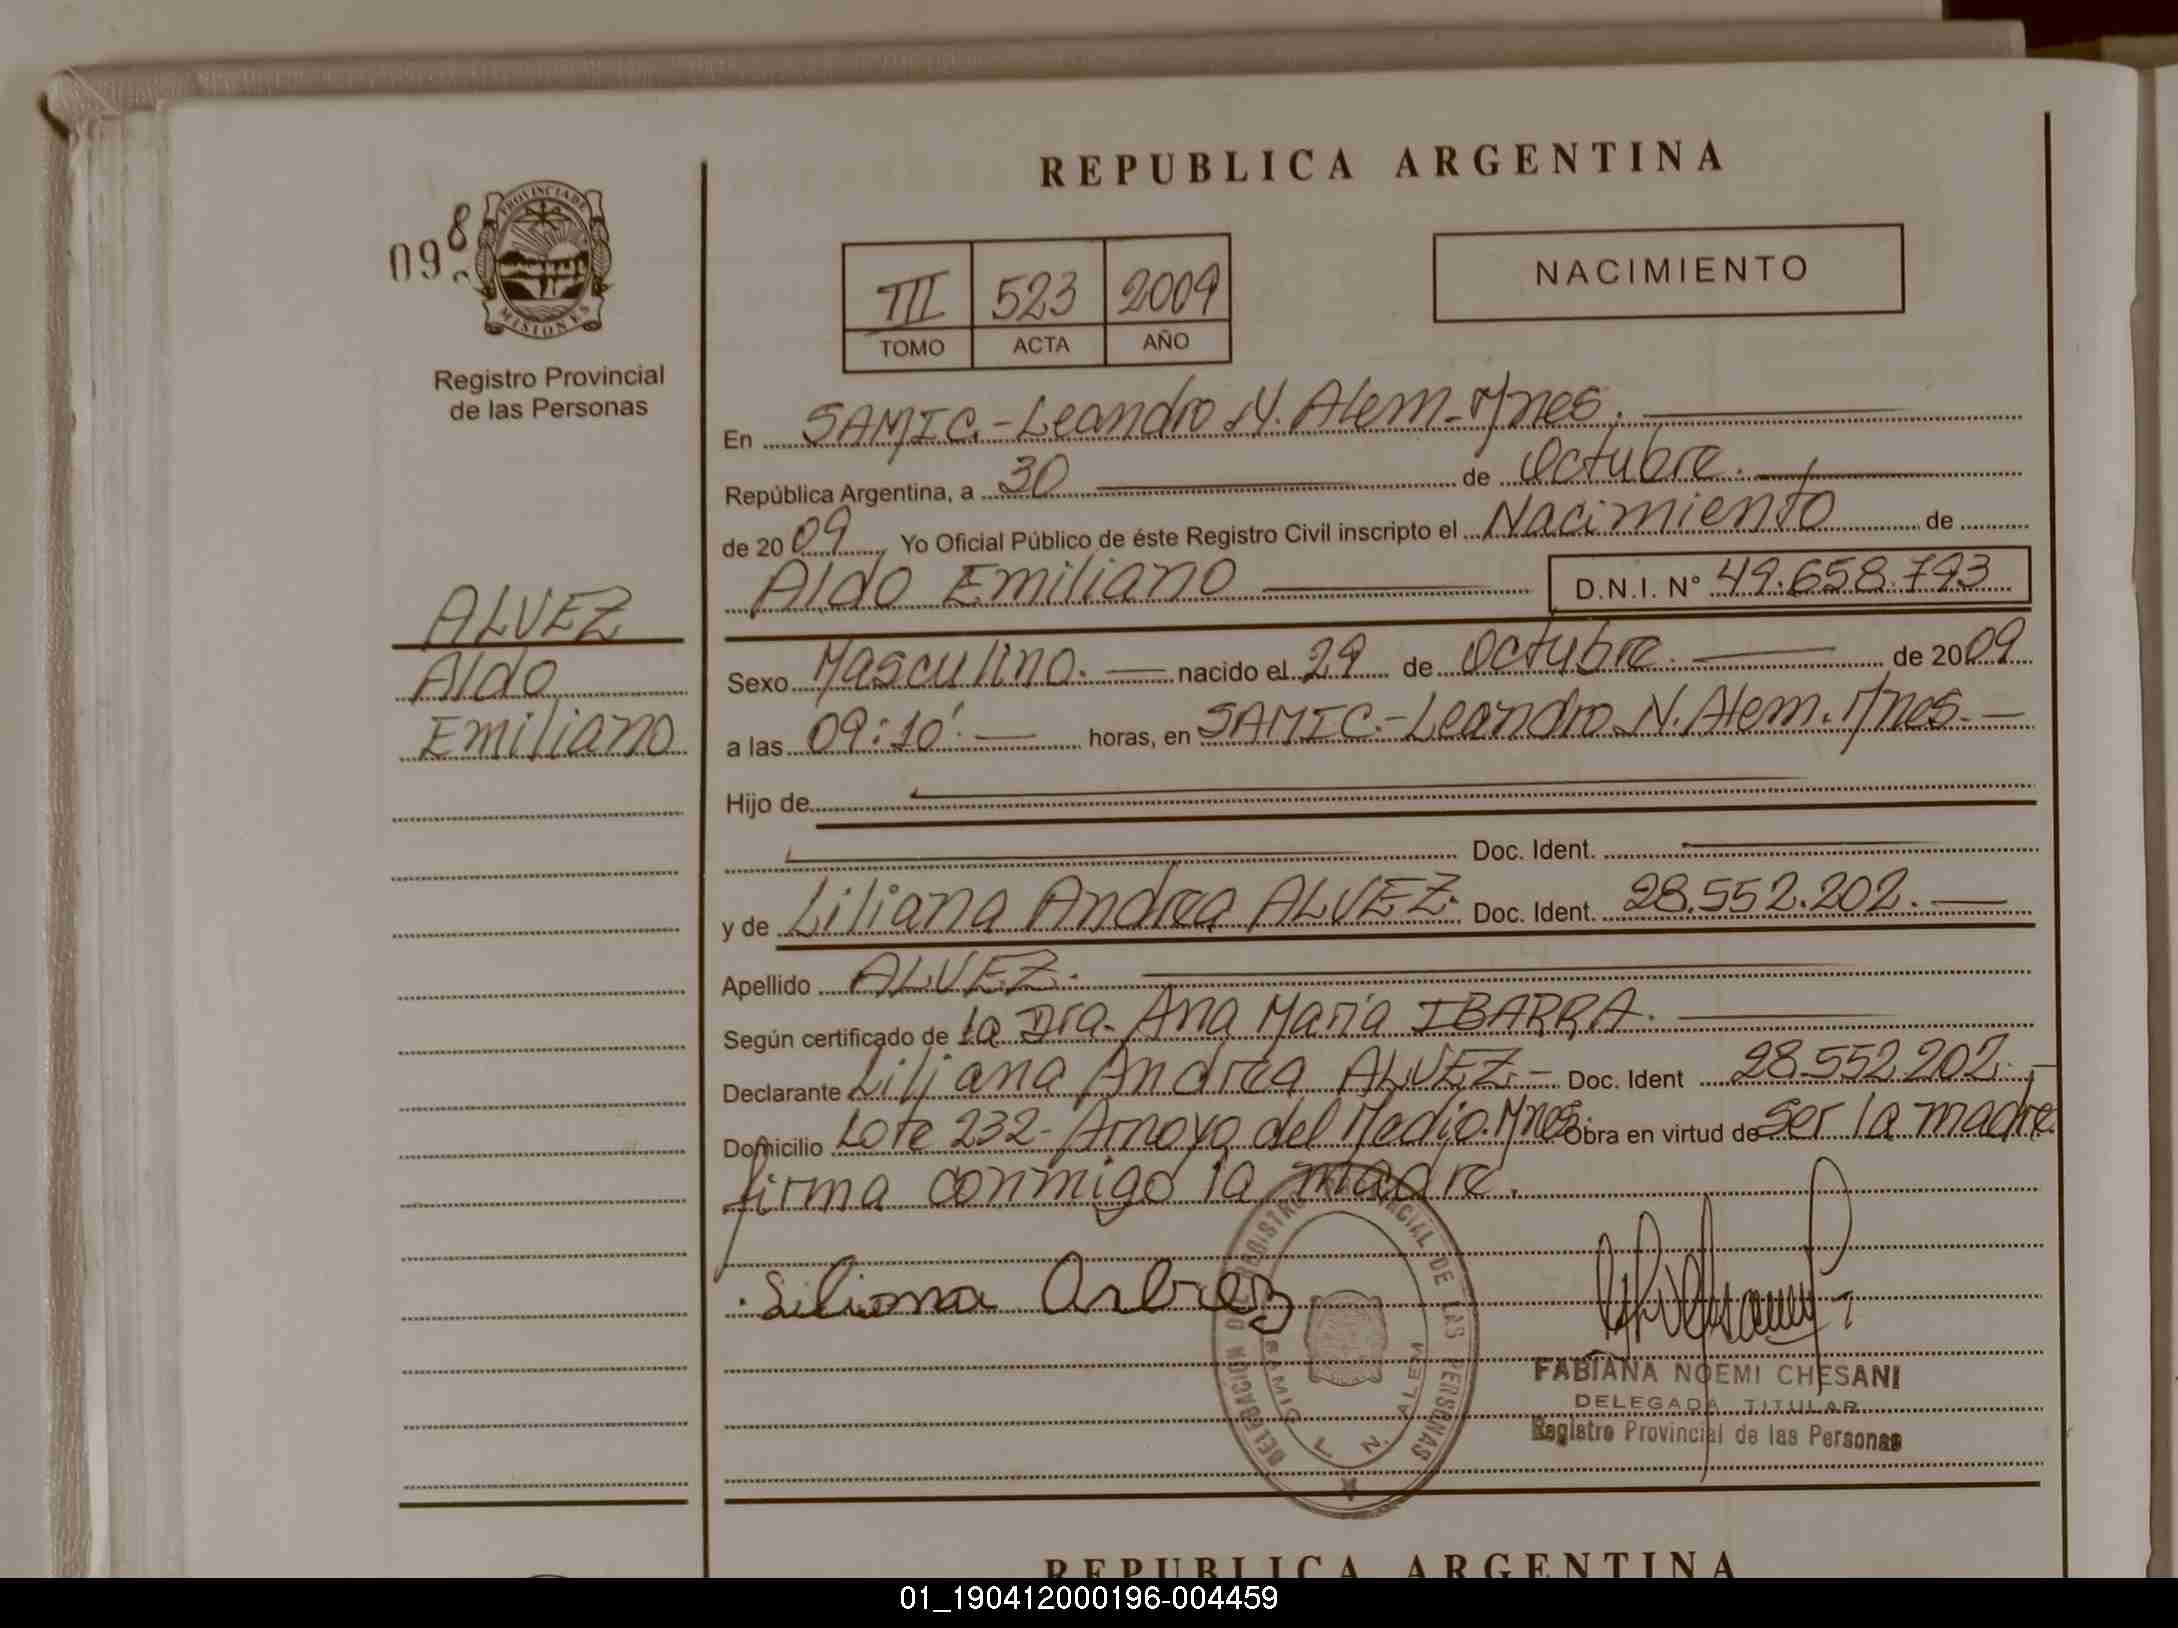 REPUBLICA ARGENTINA
098
PROVINCIA DE MISIONES
Registro Provincial
de las Personas
III 523 2009
TOMO ACTA AÑO
NACIMIENTO
En SAMIC.-Leandro N. Alem-Mnes.
República Argentina, a 30 de Octubre.
de 2009 Yo Oficial Público de éste Registro Civil inscripto el Nacimiento de
Aldo Emiliano D.N.I. N° 49.658.793
ALVEZ
Aldo
Emiliano
Sexo Masculino. nacido el 29 de Octubre. de 2009
a las 09:10' horas, en SAMIC.-Leandro N. Alem. Mnes.
Hijo de
Doc. Ident.
y de Liliana Andrea ALVEZ. Doc. Ident. 28.552.202.
Apellido ALVEZ.
Según certificado de la Dra. Ana María IBARRA.
Declarante Liliana Andrea ALVEZ.- Doc. Ident 28.552.202.-
Domicilio Lote 232-Arroyo del Medio.Mnes. Obra en virtud de ser la madre.
firma conmigo la madre.
REGISTRO PROVINCIAL DE LAS PERSONAS
DELEGACION
SAMIC L. N. ALEM
FABIANA NOEMI CHESANI
DELEGADA TITULAR
Registro Provincial de las Personas
REPUBLICA ARGENTINA
01_190412000196-004459